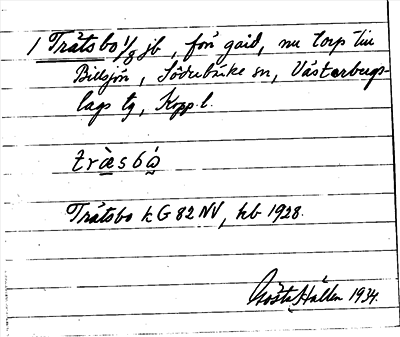 1 Tråtsbo 1/8 jb, förr gård, nu torp till
Billsjön, Söderbärke sn, Västerbergs-
lags tg, Kopp. l.
træ̀sbω
Tråtsbo kG 82 NV, hb 1928.
Gösta Hallén 1934.